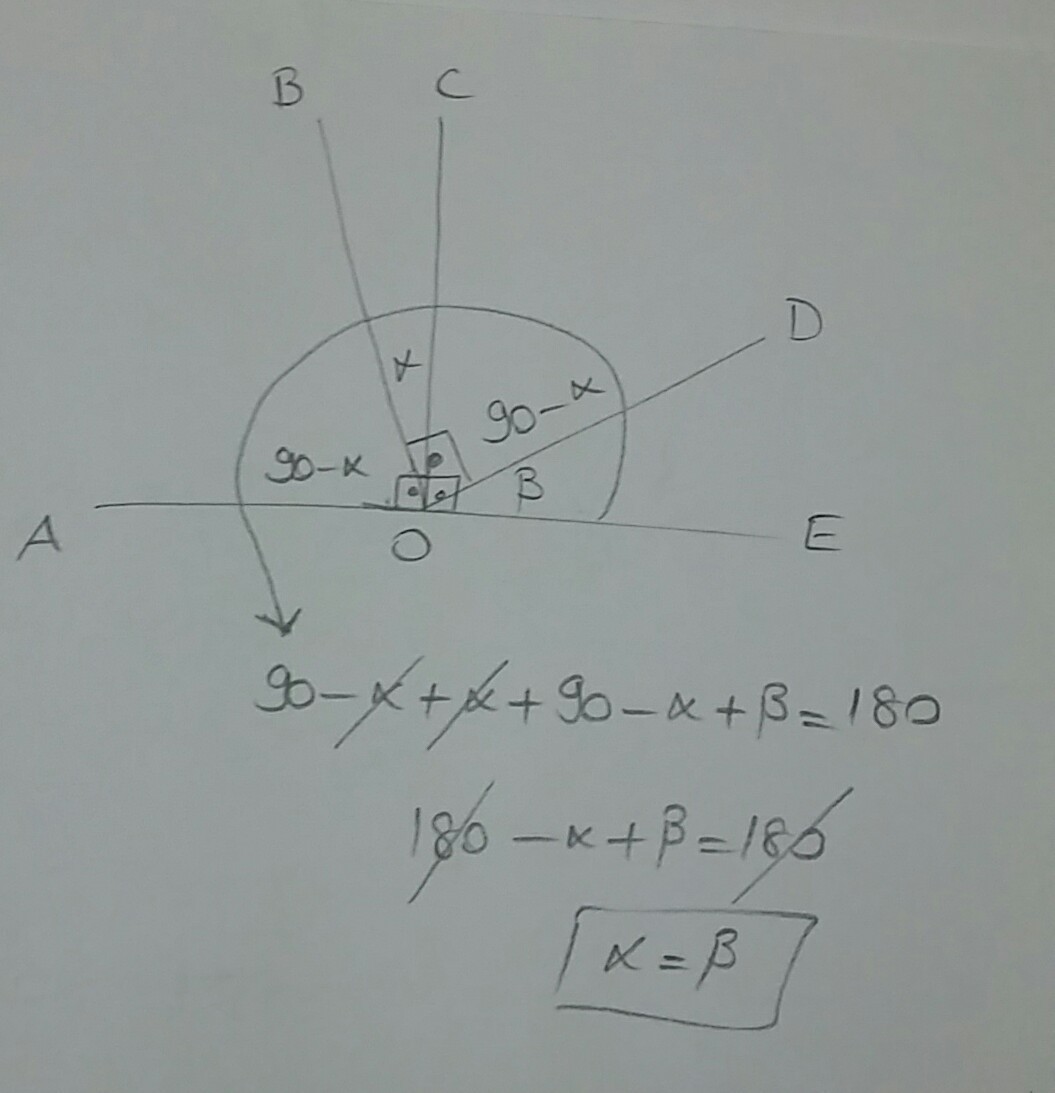 B C
D
α
90-α
90-α
β
A O E
90-α+α+90-α+β=180
180-α+β=180
α=β